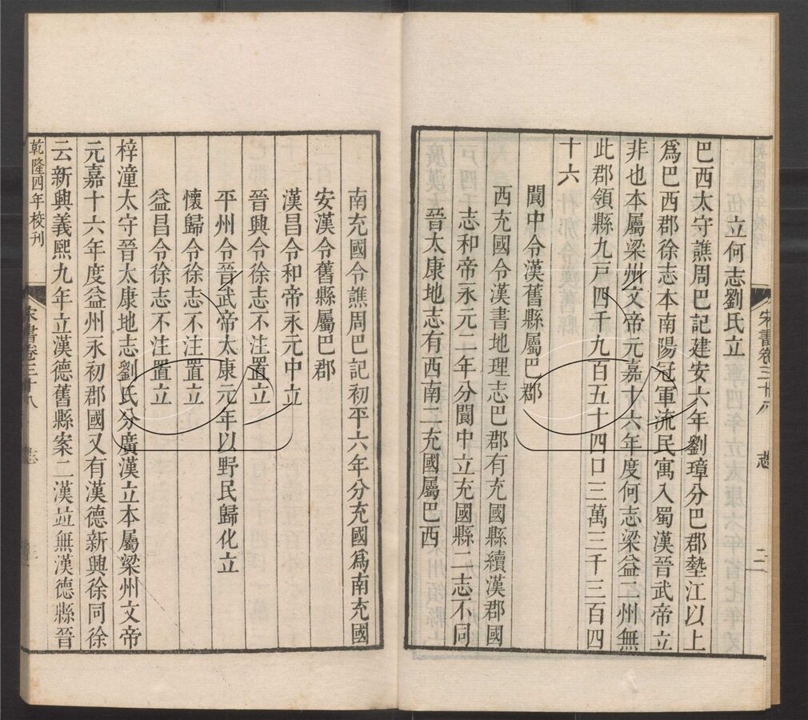 宋書卷三十八
志
二
立何志劉氏立
巴西太守譙周巴記建安六年劉璋分巴郡墊江以上
爲巴西郡徐志本南陽冠軍流民寓入蜀漢晉武帝立
非也本屬梁州文帝元嘉十六年度何志梁益二州無
此郡領縣九戸四千九百五十四口三萬三千三百四
十六
閬中令漢舊縣屬巴郡
西充國令漢書地理志巴郡有充國縣續漢郡國
志和帝永元二年分閬中立充國縣二志不同
晉太康地志有西南二充國屬巴西
南充國令譙周巴記初平六年分充國爲南充國
安漢令舊縣屬巴郡
漢昌令和帝永元中立
晉興令徐志不注置立
平州令晉武帝太康元年以野民歸化立
懷歸令徐志不注置立
益昌令徐志不注置立
梓潼太守晉太康地志劉氏分廣漢立本屬梁州文帝
元嘉十六年度益州永初郡國又有漢德新興徐同徐
云新興義熙九年立漢德舊縣案二漢並無漢德縣晉
乾隆四年校刊
宋書卷三十八
志